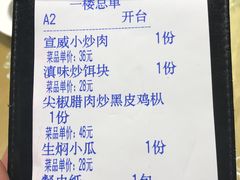 一楼总单
A2 开台
宣威小炒肉 1份
菜品单价: 36元
滇味炒饵块 1份
菜品单价: 28元
尖椒腊肉炒黑皮鸡枞
1份
菜品单价: 46元
生焖小瓜 1份
菜品单价: 28元
餐巾纸 1包